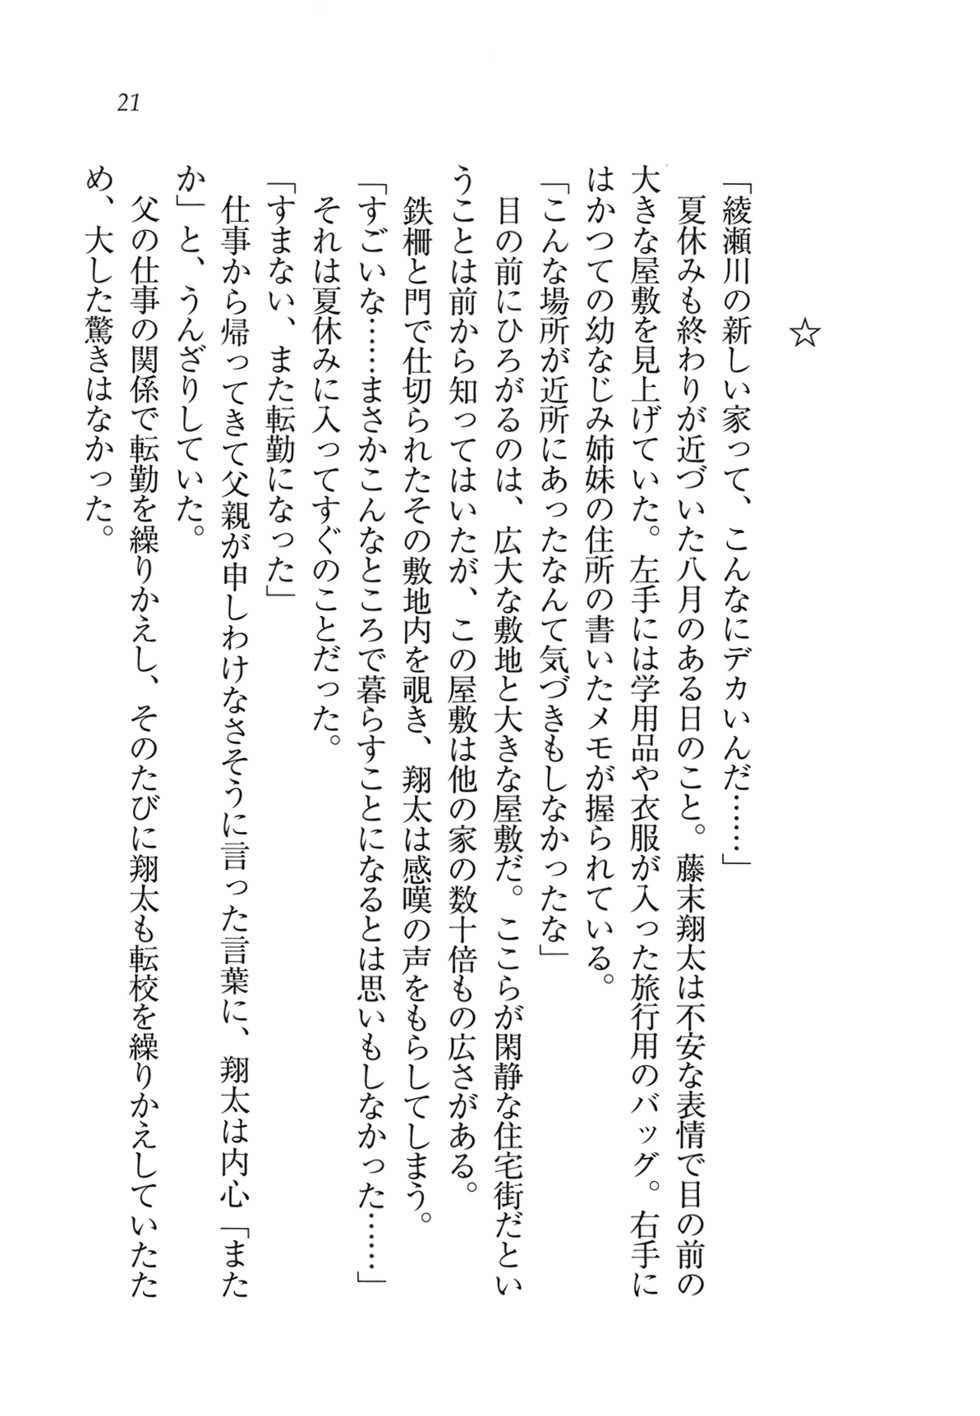 21
☆
「綾瀬川の新しい家って、こんなにデカいんだ……」
夏休みも終わりが近づいた八月のある日のこと。藤末翔太は不安な表情で目の前の
大きな屋敷を見上げていた。左手には学用品や衣服が入った旅行用のバッグ。右手に
はかつての幼なじみ姉妹の住所の書いたメモが握られている。
「こんな場所が近所にあったなんて気づきもしなかったな」
目の前にひろがるのは、広大な敷地と大きな屋敷だ。ここらが閑静な住宅街だとい
うことは前から知ってはいたが、この屋敷は他の家の数十倍もの広さがある。
鉄柵と門で仕切られたその敷地内を覗き、翔太は感嘆の声をもらしてしまう。
「すごいな……まさかこんなところで暮らすことになるとは思いもしなかった……」
それは夏休みに入ってすぐのことだった。
「すまない、また転勤になった」
仕事から帰ってきて父親が申しわけなさそうに言った言葉に、翔太は内心「また
か」と、うんざりしていた。
父の仕事の関係で転勤を繰りかえし、そのたびに翔太も転校を繰りかえしていたた
め、大した驚きはなかった。